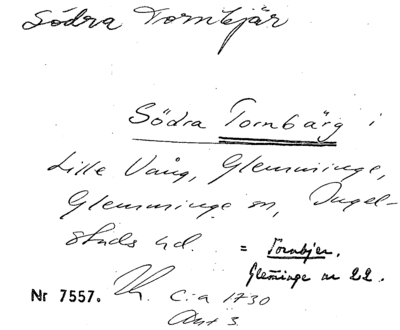 Södra Tornbjär
Södra Tornbärg i
Lille Vång, Glemminge,
Glemminge sn, Ingel-
stads hd. = Tornbjer.
Glem̄inge nr 22.
Nr 7557. Lk. c:a 1730
Akt 3.